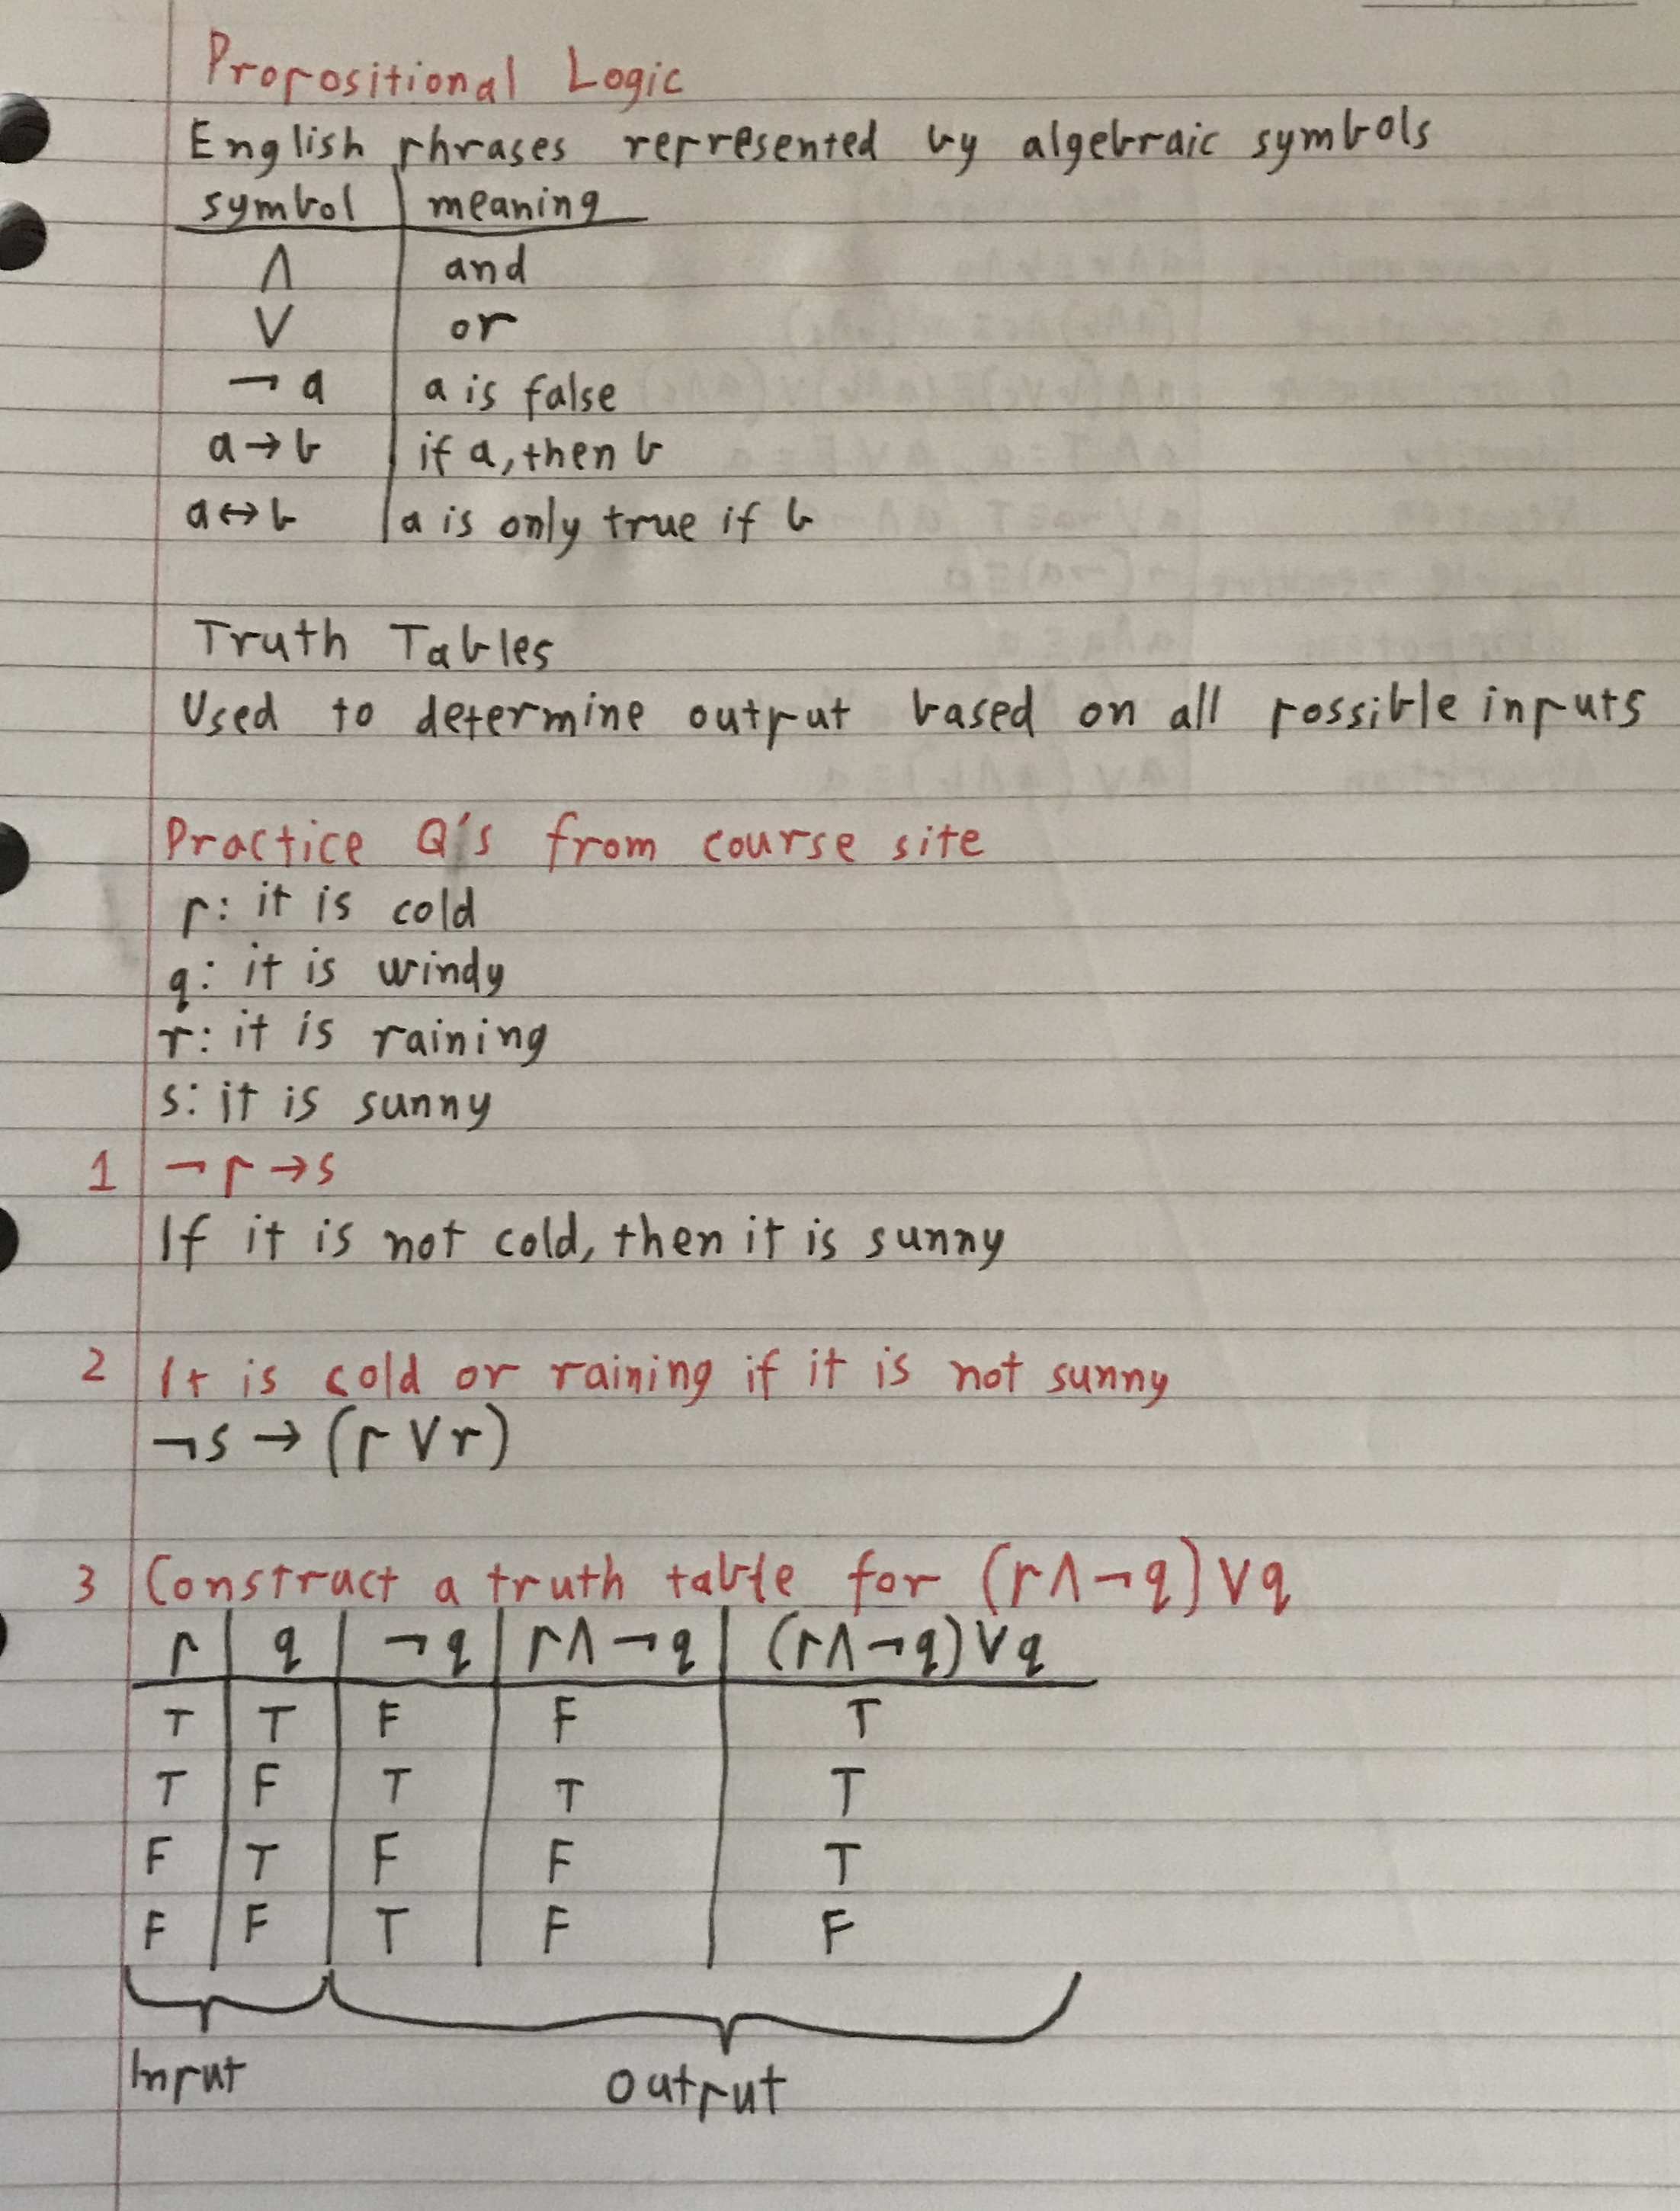 Propositional Logic
English phrases represented by algebraic symbols
symbol | meaning
∧ | and
∨ | or
¬a | a is false
a→b | if a, then b
a↔b | a is only true if b
Truth Tables
Used to determine output based on all possible inputs
Practice Q's from course site
p: it is cold
q: it is windy
r: it is raining
s: it is sunny
1 ¬p→s
If it is not cold, then it is sunny
2 It is cold or raining if it is not sunny
¬s→(p∨r)
3 Construct a truth table for (p∧¬q)∨q
p | q | ¬q | p∧¬q | (p∧¬q)∨q
T | T | F | F | T
T | F | T | T | T
F | T | F | F | T
F | F | T | F | F
Input output